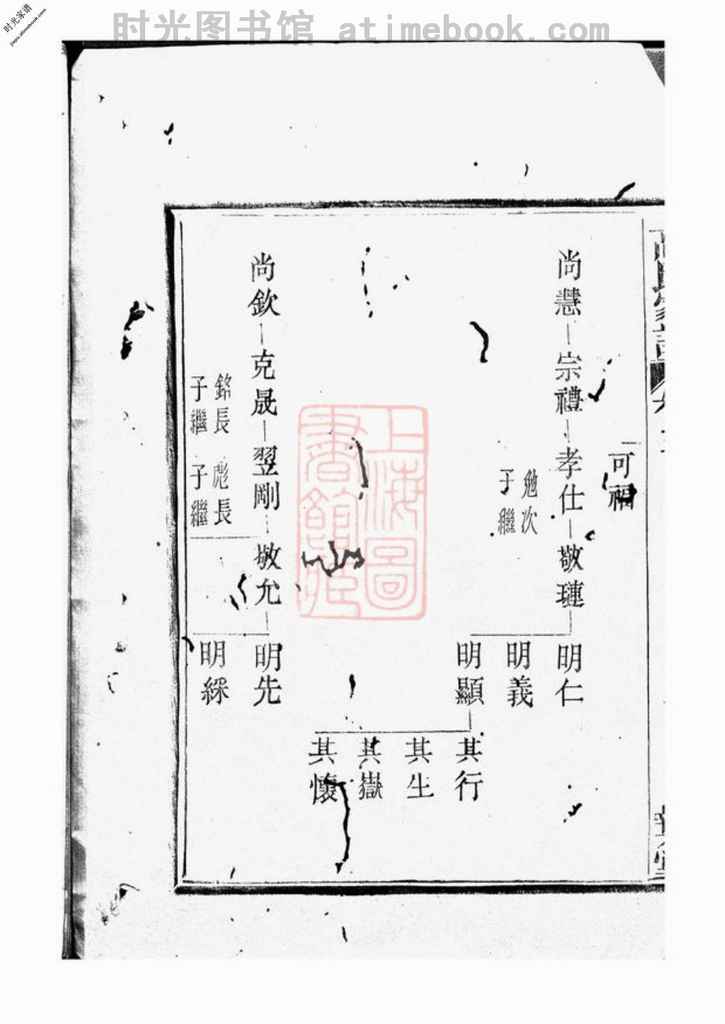 时光图书馆 atimebook.com
时光家谱
可福
尚慧 宗禮 孝仕 敬璉 明仁
勉次
子繼
明義
明顯 其行
其生
其嶽
其懷
上海圖
書館藏
尚欽 克晟 翌剛 敬允 明先
銘長 彪長
子繼 子繼
明綵